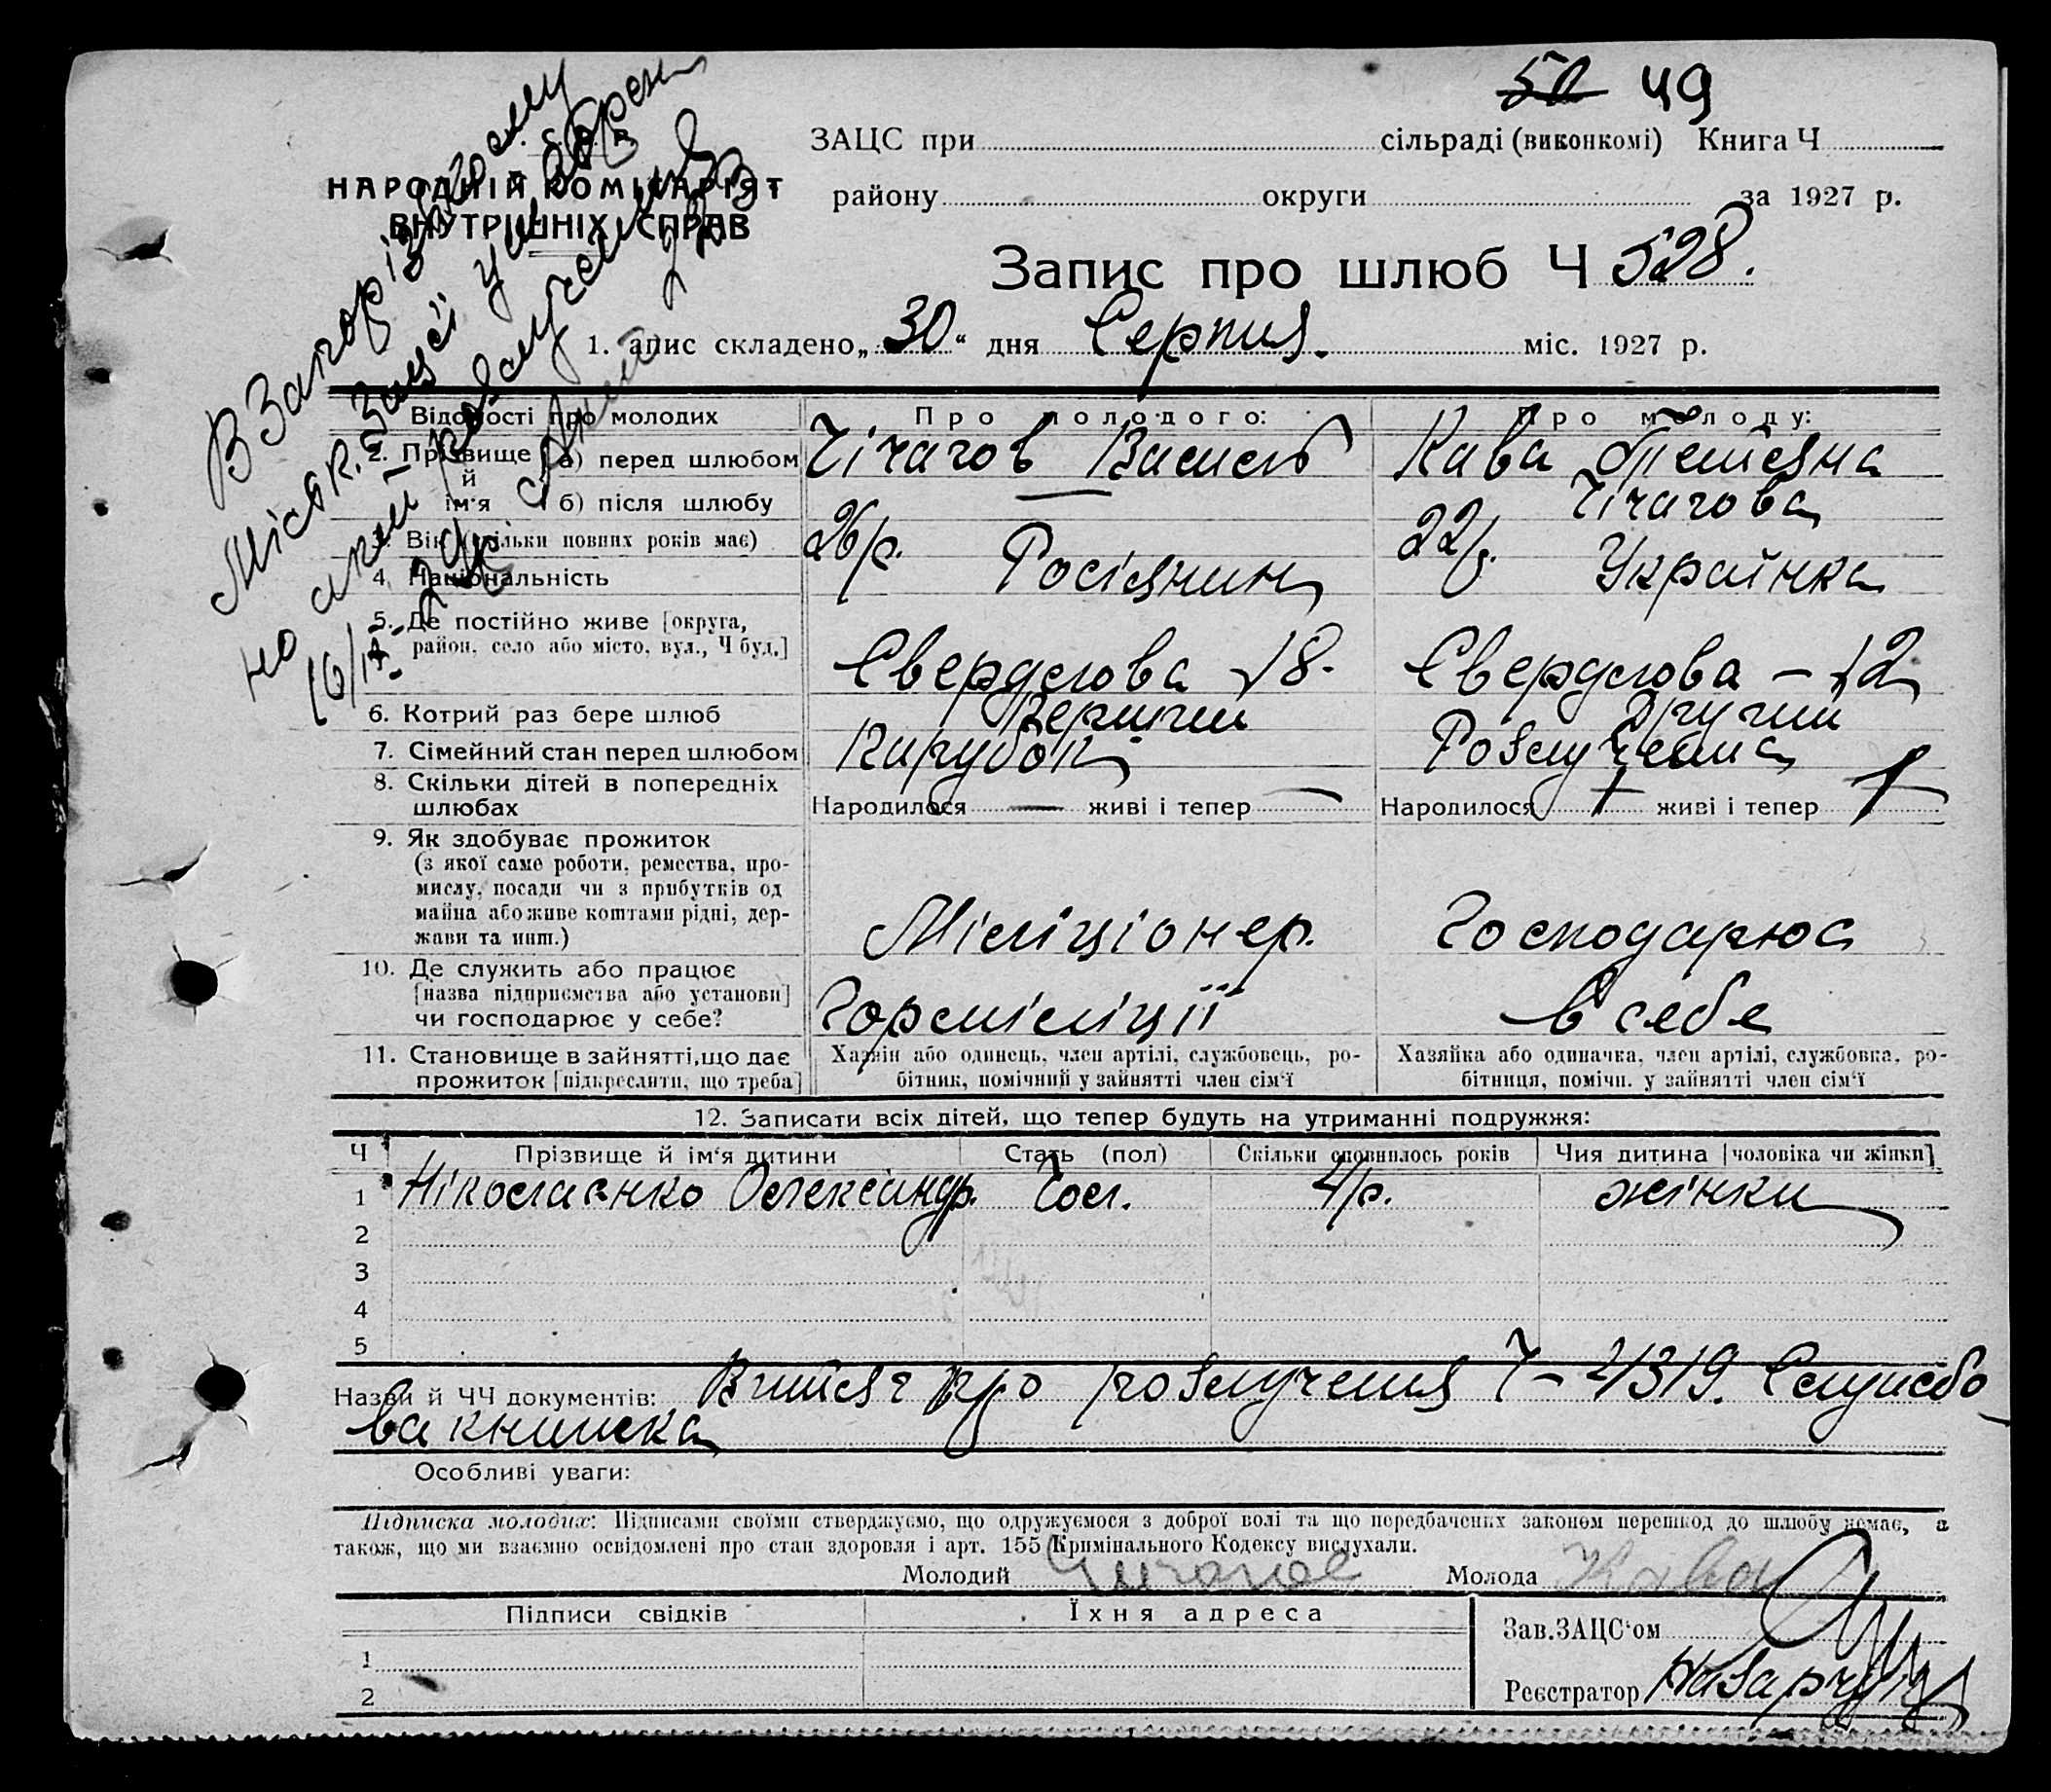 50 49
ЗАЦС при сільраді (виконкомі) Книга Ч
НАРОДНІЙ КОМІСАРІЯТ
ВНУТРІШНІХ СПРАВ
району округи за 1927 р.
Запис про шлюб Ч 528.
1. апис складено „30“ дня Серпня. міс. 1927 р.
В Запорізькому
Міськ. Загсі
но акт розлучення
16/IX
Відомості про молодих Про молодого: Про молоду:
2. Прізвище й ім'я а) перед шлюбом Чічагов Василь Кава
б) після шлюбу — Чічагова
3. Вік (скільки повних років має) 26 р. 22 р.
4. Національність Росіянин Українка
5. Де постійно живе [округа,
район, село або місто, вул., Ч буд.] Свердлова 18. Свердлова – 12
6. Котрий раз бере шлюб Перший Другий
7. Сімейний стан перед шлюбом Парубок Розлучена
8. Скільки дітей в попередніх
шлюбах Народилося — живі і тепер — Народилося 1 живі і тепер 1
9. Як здобуває прожиток
(з якої саме роботи, ремества, про-
мислу, посади чи з прибутків од
майна або живе коштами рідні, дер-
жави та инш.) Міліціонер. Господарює
10. Де служить або працює
[назва підприємства або установи]
чи господарює у себе? Горміліції в себе
11. Становище в зайнятті, що дає
прожиток [підкреслити, що треба]
Хазяїн або одинець, член артілі, службовець, ро-
бітник, помічний у зайнятті член сім'ї
Хазяйка або одиначка, член артілі, службовка, ро-
бітниця, помічн. у зайнятті член сім'ї
12. Записати всіх дітей, що тепер будуть на утриманні подружжя:
Ч Прізвище й ім'я дитини Стать (пол) Скільки сповнилось років Чия дитина [чоловіка чи жінки]
1 Ніколаєнко Олександр. Чол. 4 р. жінки
2
3
4
5
Назви й ЧЧ документів: Витяг про розлучення Ч – 4319. Службо
ва книжка
Особливі уваги:
Підписка молодих: Підписами своїми стверджуємо, що одружуємося з доброї волі та що передбачених законом перешкод до шлюбу немає, а
також, що ми взаємно освідомлені про стан здоровля і арт. 155 Кримінального Кодексу вислухали.
Молодий Чичагов Молода Кава
Підписи свідків Їхня адреса
Зав. ЗАЦС'ом
1
Реєстратор
2